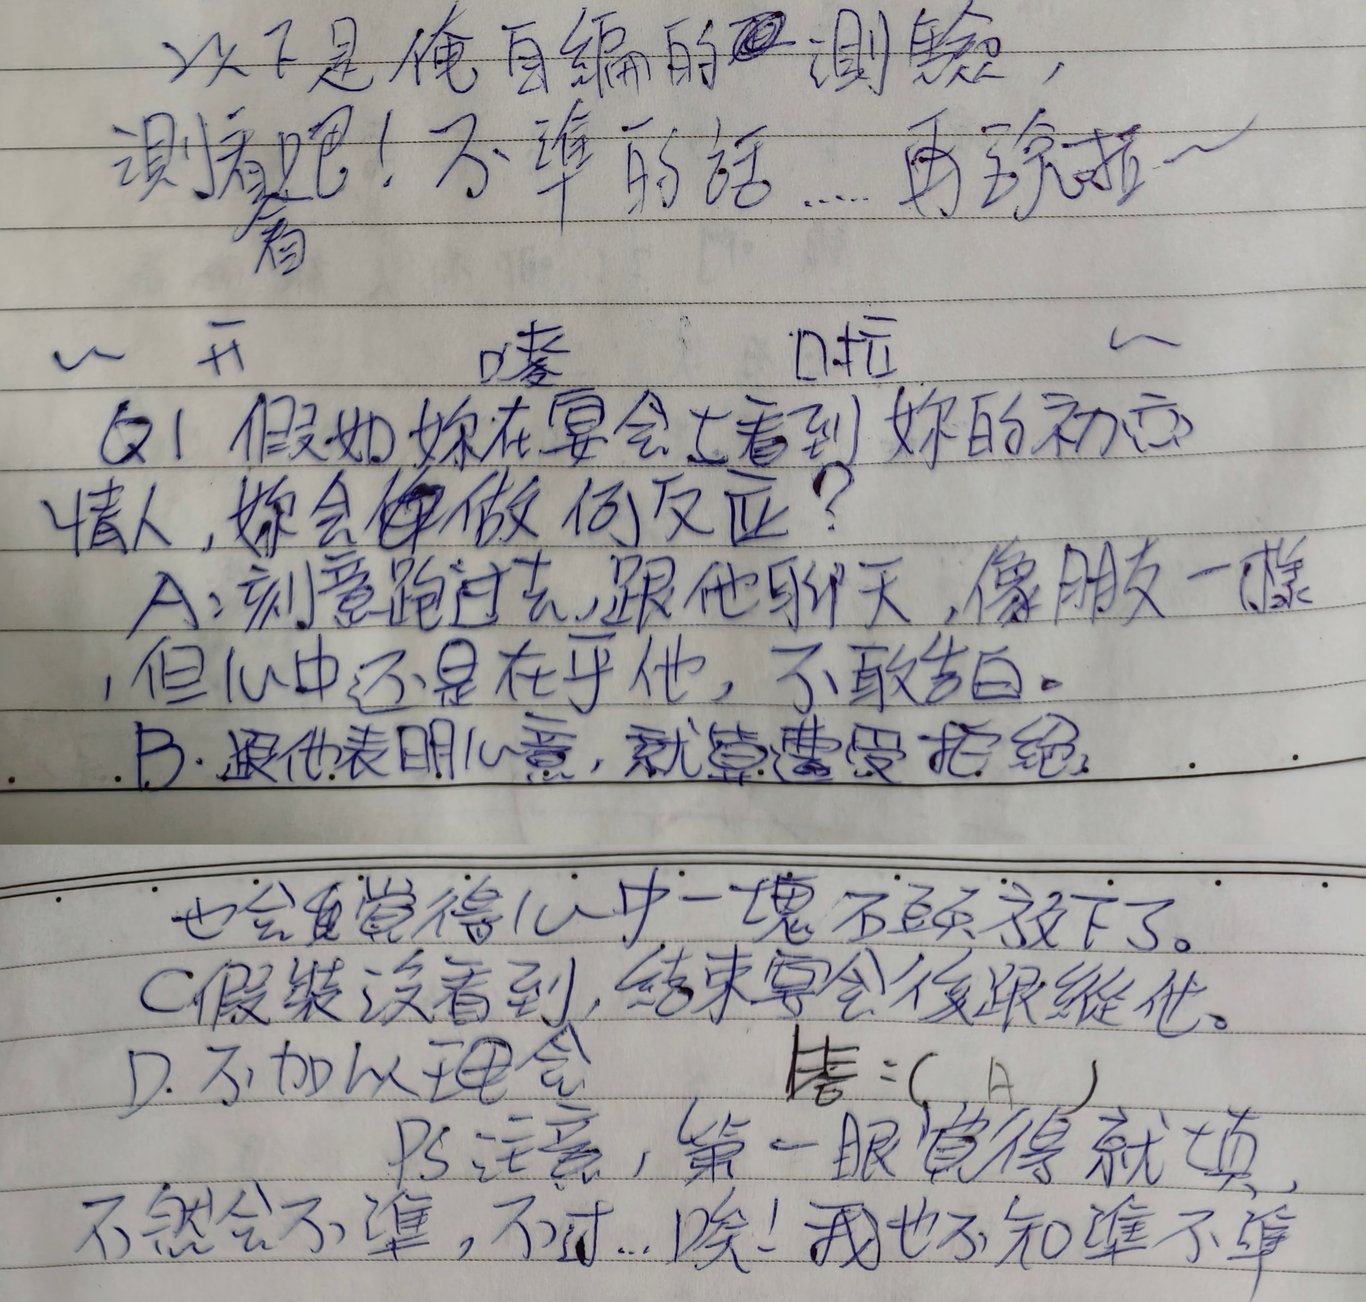 以下是俺自編的測驗，
測看看吧！不準的話.....再說啦~
~ 开 嗉 啦 ~
Q1 假如妳在宴会上看到妳的初恋
情人，妳会做何反应？
A：刻意跑过去，跟他聊天，像朋友一樣
，但心中还是在乎他，不敢告白。
B. 跟他表明心意，就算遭受拒絕，
也会覺得心中一塊石頭放下了。
C 假裝沒看到，結束宴会後跟縱他。
D. 不加以理会 答：( A )
PS 注意，第一眼覺得就填，
不然会不準，不过...唉！我也不知準不準